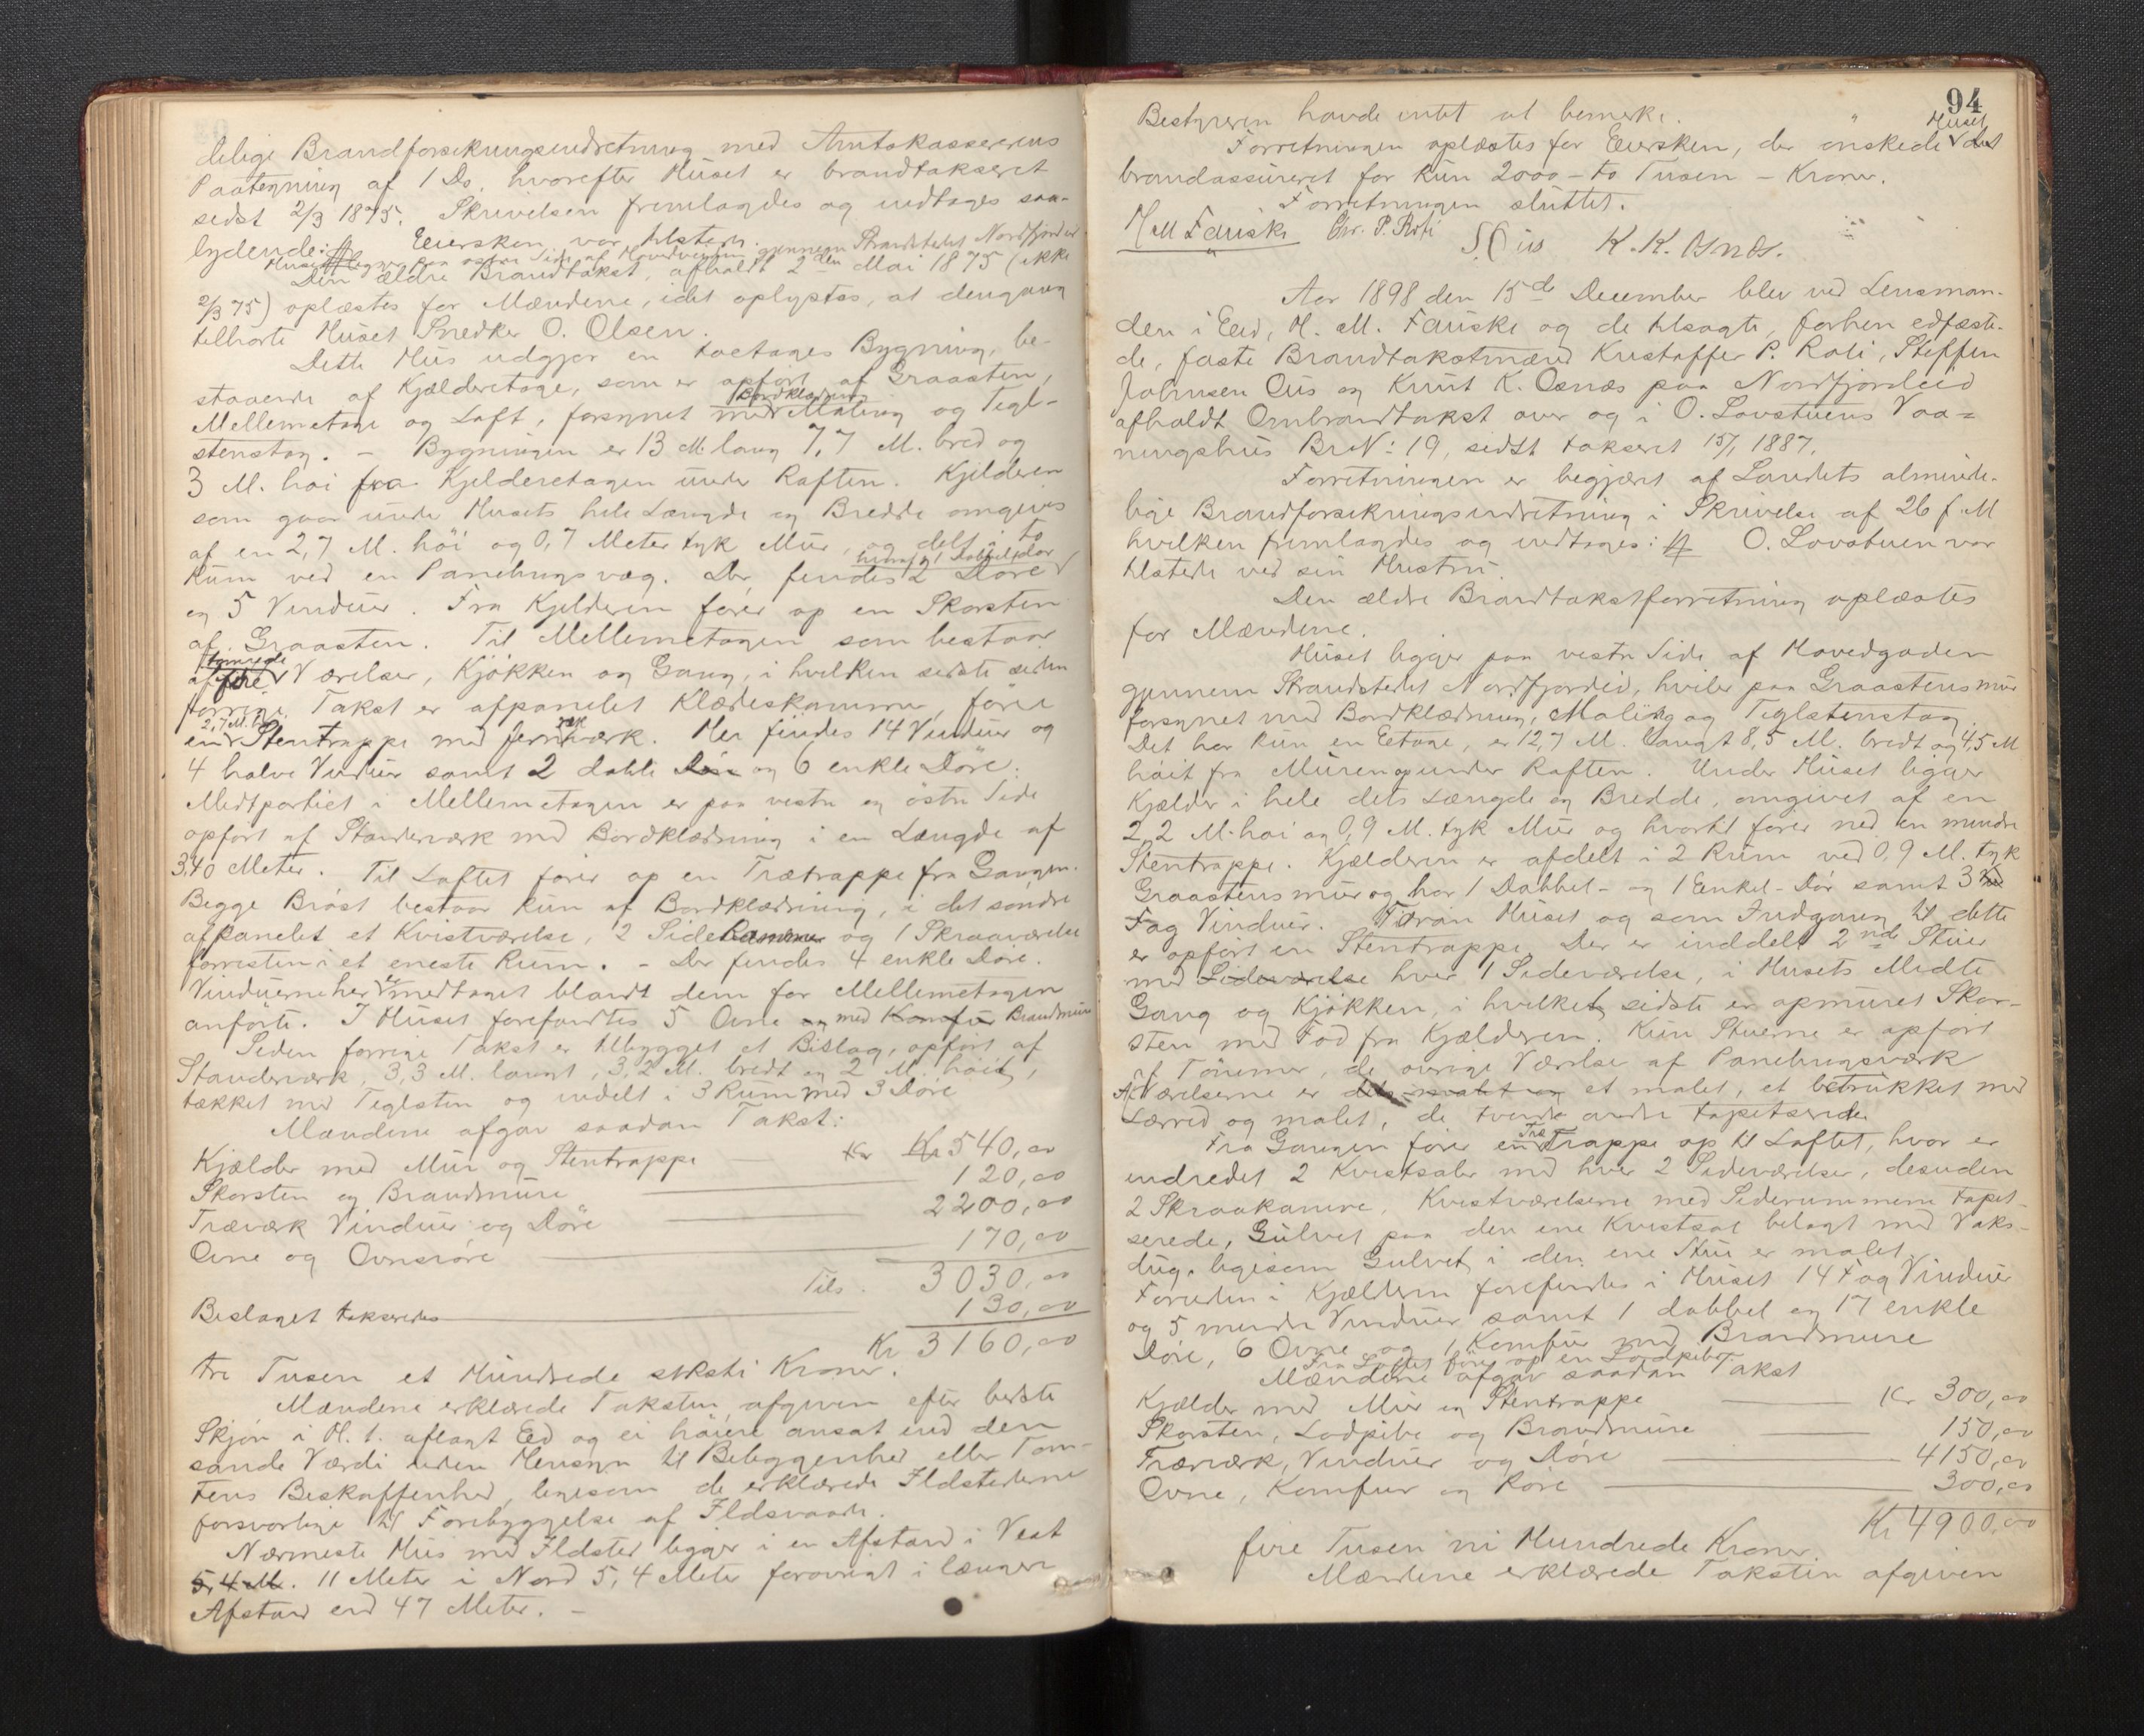 delige Brandforsikringsindretning med Amtskassererens
Paategning af 1 Ds. hvorefter Huset er brandtakseret
sidst 2/3 1875. Skrivelsen fremlagdes og indtages saa-
lydende: Eiersken var tilstede.
Huset ligger paa østre Side af Hovedveien gjennem Strandstedet Nordfjordeid
Den ældre Brandtakst, afholdt 2den Mai 1875 (ikke
2/3 75) oplæstes for Mændene, idet oplystes, at dengang
tilhørte Huset Snedker O. Olsen.
Dette Hus udgjør en toetages Bygning, be-
staaende af Kjælderetage, som er opført af Graasten,
Mellemetage og Loft, forsynet med Bordklædning Maling og Tegl-
stenstag. - Bygningen er 13 M. lang 7,7 M. bred og
3 M. høi fra Kjelderetagen under Raften. Kjelderen
som gaar under Husets hele Længde og Bredde omgives
af en 2,7 M. høi og 0,7 Meter tyk Mur, og delt i to
Rum ved en Panelingsvæg. Der findes 2 Døre hvoraf 1 Dobbeltdør
og 5 Vinduer. Fra Kjelderen fører op en Skorsten
af Graasten. Til Mellemetagen som bestaar
af fire tømrede Værelser, Kjøkken og Gang, i hvilken sidste siden
forrige Takst er afpanelet Klædeskammer, fører
en 2,7 M. Stentrappe med Jernrækværk. Her findes 14 Vinduer og
4 halve Vinduer samt 2 doble Døre og 6 enkle Døre.
Midtpartiet i Mellemetagen er paa vestre og østre Side
opført af Standerværk med Bordklædning i en Længde af
3,40 Meter. Til Loftet fører op en Trætrappe fra Gangen.
Begge Brøst bestaar kun af Bordklædning, i det søndre
afpanelet et Kvistværelse, 2 Siderammer og 1 Skraaværelse
forresten i et eneste Rum. - Der findes 4 enkle Døre.
Vinduerne her er medtaget blandt dem for Mellemetagen
anførte. I Huset forefandtes 5 Ovne og med Komfur Brandmure
Siden forrige Takst er tilbygget et Bislag, opført af
Standerværk, 3,3 M. langt, 3,2 M. bredt og 2 M. høit,
tækket med Teglsten og indelt i 3 Rum med 3 Døre
Mændene afgav saadan Takst:
Kjælder med Mur og Stentrappe Kr 540,00
Skorsten og Brandmure 120,00
Træværk Vinduer og Døre 2200,00
Ovne og Ovnsrøre 170,00
Tils. 3030,00
Bislaget takseredes 130,00
Kr 3160,00
tre Tusen et Hundrede seksti Kroner.
Mændene erklærede Taksten afgiven efter bedste
Skjøn i H. t. aflagt Eed og ei høiere ansat end den
sande Værdi uden Hensyn til Beliggenhed eller Tom-
tens Beskaffenhed, ligesom de erklærede Ildstederne
forsvarlige til Forebyggelse af Ildsvaade.
Nærmeste Hus med Ildsted ligger i en Afstand i Vest
5,4 M. 11 Meter i Nord 5,4 Meter forøvrigt i længere
Afstand end 47 Meter. -
94
Bestyreren havde intet at bemerke.
Forretningen oplæstes for Eiersken, der ønskede Huset
brandassureret for kun 2000 - to Tusen - Kroner.
Forretningen sluttet.
H M Fauske Chr. P. Roti S. J. Ous K. K. Osnæs.
Aar 1898 den 15de December blev ved Lensman-
den i Eid, H. M. Fauske og de tilsagte, forhen edfæste-
de, faste Brandtakstmænd Kristoffer P. Roti, Steffen
Johnsen Ous og Knut K. Osnæs paa Nordfjordeid
afholdt Ombrandtakst over og i O. Lovstuens Vaa-
ningshus BrN: 19, sidst takseret 15/1 1887.
Forretningen er begjært af Landets alminde-
lige Brandforsikringsindretning i Skrivelse af 26 f. M
hvilken fremlagdes og indtages: O. Lovstuen var
tilstede ved sin Hustru.
Den ældre Brandtakstforretning oplæstes
for Mændene.
Huset ligger paa vestre Side af Hovedgaden
gjennem Strandstedet Nordfjordeid, hviler paa Graastensmur
forsynet med Bordklædning, Maling og Teglstenstag.
Det har kun en Eetage, er 12,7 M. langt 8,5 M. bredt og 4,5 M
høit fra Muren op under Raften. Under Huset ligger
Kjælder i hele dets Længde og Bredde, omgivet af en
2,2 M. høi og 0,9 M. tyk Mur og hvortil fører ned en mindre
Stentrappe. Kjælderen er afdelt i 2 Rum ved 0,9 M. tyk
Graastensmur og har 1 Dobbel- og 1 Enkel-Dør samt 3
Fag Vinduer. Foran Huset og som Indgang til dette
er opført en Stentrappe. Der er inddelt 2nde Stuer
med Sideværelse hver 1 Sideværelse, i Husets Midte
Gang og Kjøkken, i hvilket sidste er opmuret Skor-
sten med Fod fra Kjælderen. Kun Stuerne er opført
af Tømmer, de øvrige Værelse af Panelingsværk
Af Værelserne er dels malet og et malet, et betrukket med
Lærred og malet, de tvende andre tapetserede
Fra Gangen fører en Træ Trappe op til Loftet, hvor er
indredet 2 Kvistsaler med hver 2 Sideværelser, desuden
2 Skraakamre. Kvistværelserne med Siderummene tapet-
serede, Gulvet paa den ene Kvistsal belagt med Voks-
dug, ligesom Gulvet i den ene Stue er malet.
Foruden i Kjælderen forefindes i Huset 14 Fag Vinduer
og 5 mindre Vinduer samt 1 dobbel og 17 enkle
Døre, 6 Ovne og 1 Komfur med Brandmure
Fra Loftet fører op en Lodpibe.
Mændene afgav saadan Takst
Kjælder med Mur og Stentrappe Kr 300,00
Skorsten, Lodpibe og Brandmure 150,00
Træværk, Vinduer og Døre 4150,00
Ovne, Komfur og Røre 300,00
Kr 4900,00
fire Tusen ni Hundrede Kroner.
Mændene erklærede Taksten afgiven